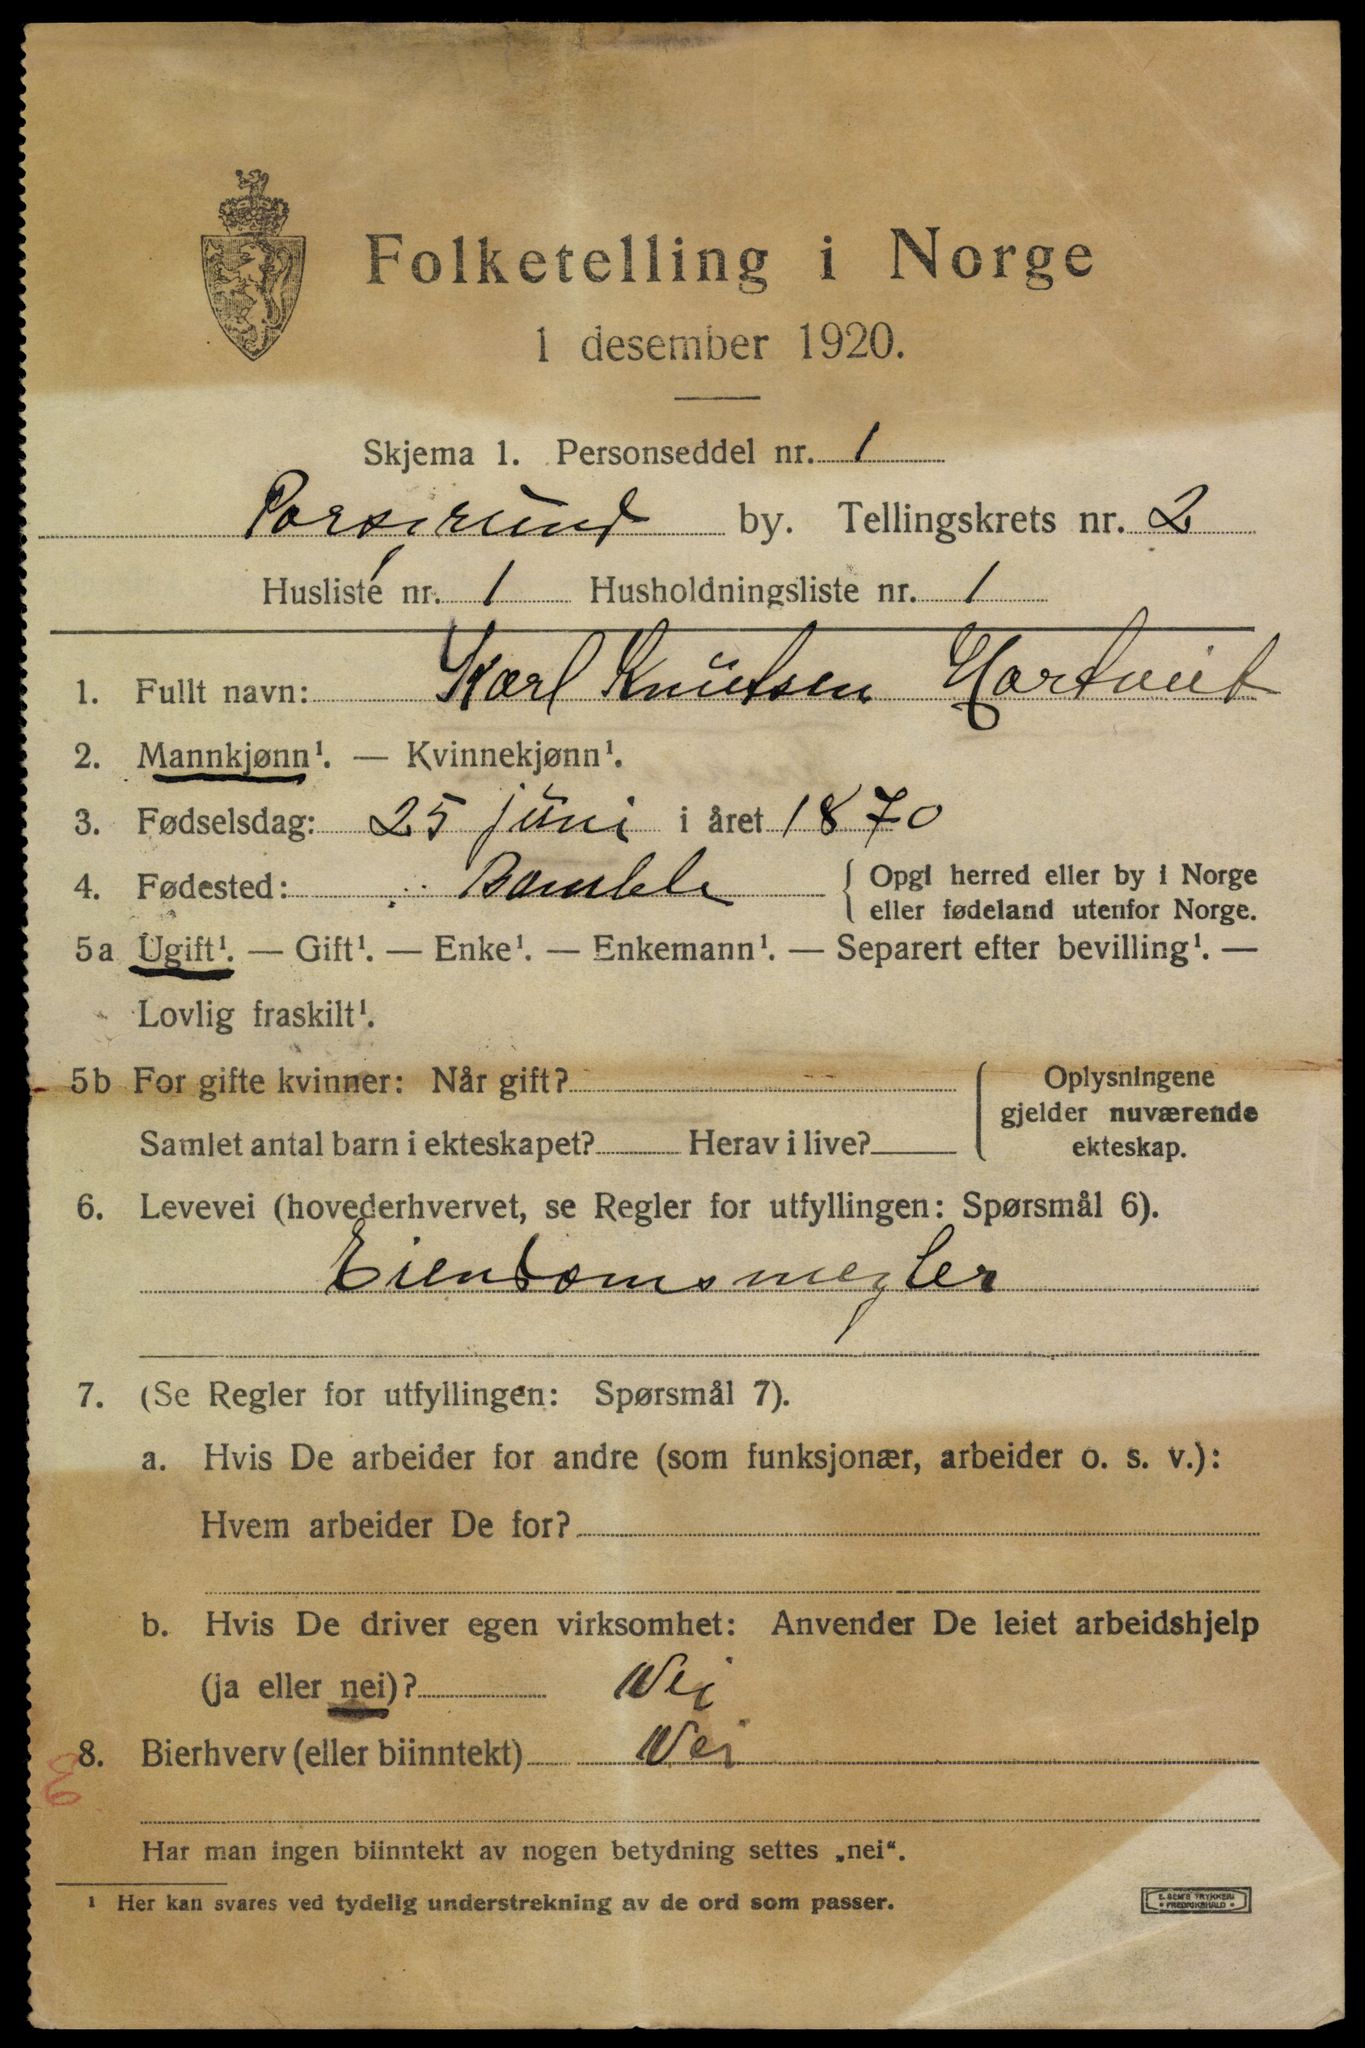 Folketelling i Norge
1 desember 1920.
Skjema 1. Personseddel nr. 1
Porsgrund by. Tellingskrets nr. 2
Husliste nr. 1 Husholdningsliste nr. 1
1. Fullt navn: Karl Knutsen Hartveit
2. Mannkjønn¹. — Kvinnekjønn¹.
3. Fødselsdag: 25 juni i året 1870
4. Fødested: Bamble { Opgi herred eller by i Norge
eller fødeland utenfor Norge.
5a Ugift¹. — Gift¹. — Enke¹. — Enkemann¹. — Separert efter bevilling¹. —
Lovlig fraskilt¹.
5b For gifte kvinner: Når gift? { Oplysningene
gjelder nuværende
Samlet antal barn i ekteskapet? Herav i live? ekteskap.
6. Levevei (hovederhvervet, se Regler for utfyllingen: Spørsmål 6).
Eiendomsmegler
7. (Se Regler for utfyllingen: Spørsmål 7).
a. Hvis De arbeider for andre (som funksjonær, arbeider o. s. v.):
Hvem arbeider De for?
b. Hvis De driver egen virksomhet: Anvender De leiet arbeidshjelp
(ja eller nei)? Nei
8. Bierhverv (eller biinntekt) Nei
Har man ingen biinntekt av nogen betydning settes „nei“.
¹ Her kan svares ved tydelig understrekning av de ord som passer.
E. SEM'S TRYKKERI
• FREDRIKSHALD •